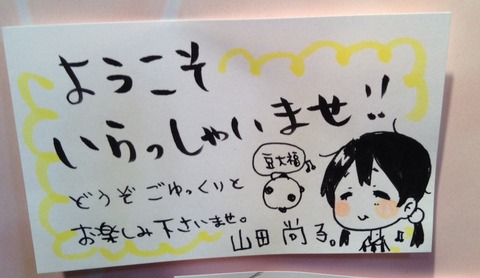 ようこそ
いらっしゃいませ!!
豆大福
どうぞごゆっくりと
お楽しみ下さいませ。
山田尚子。